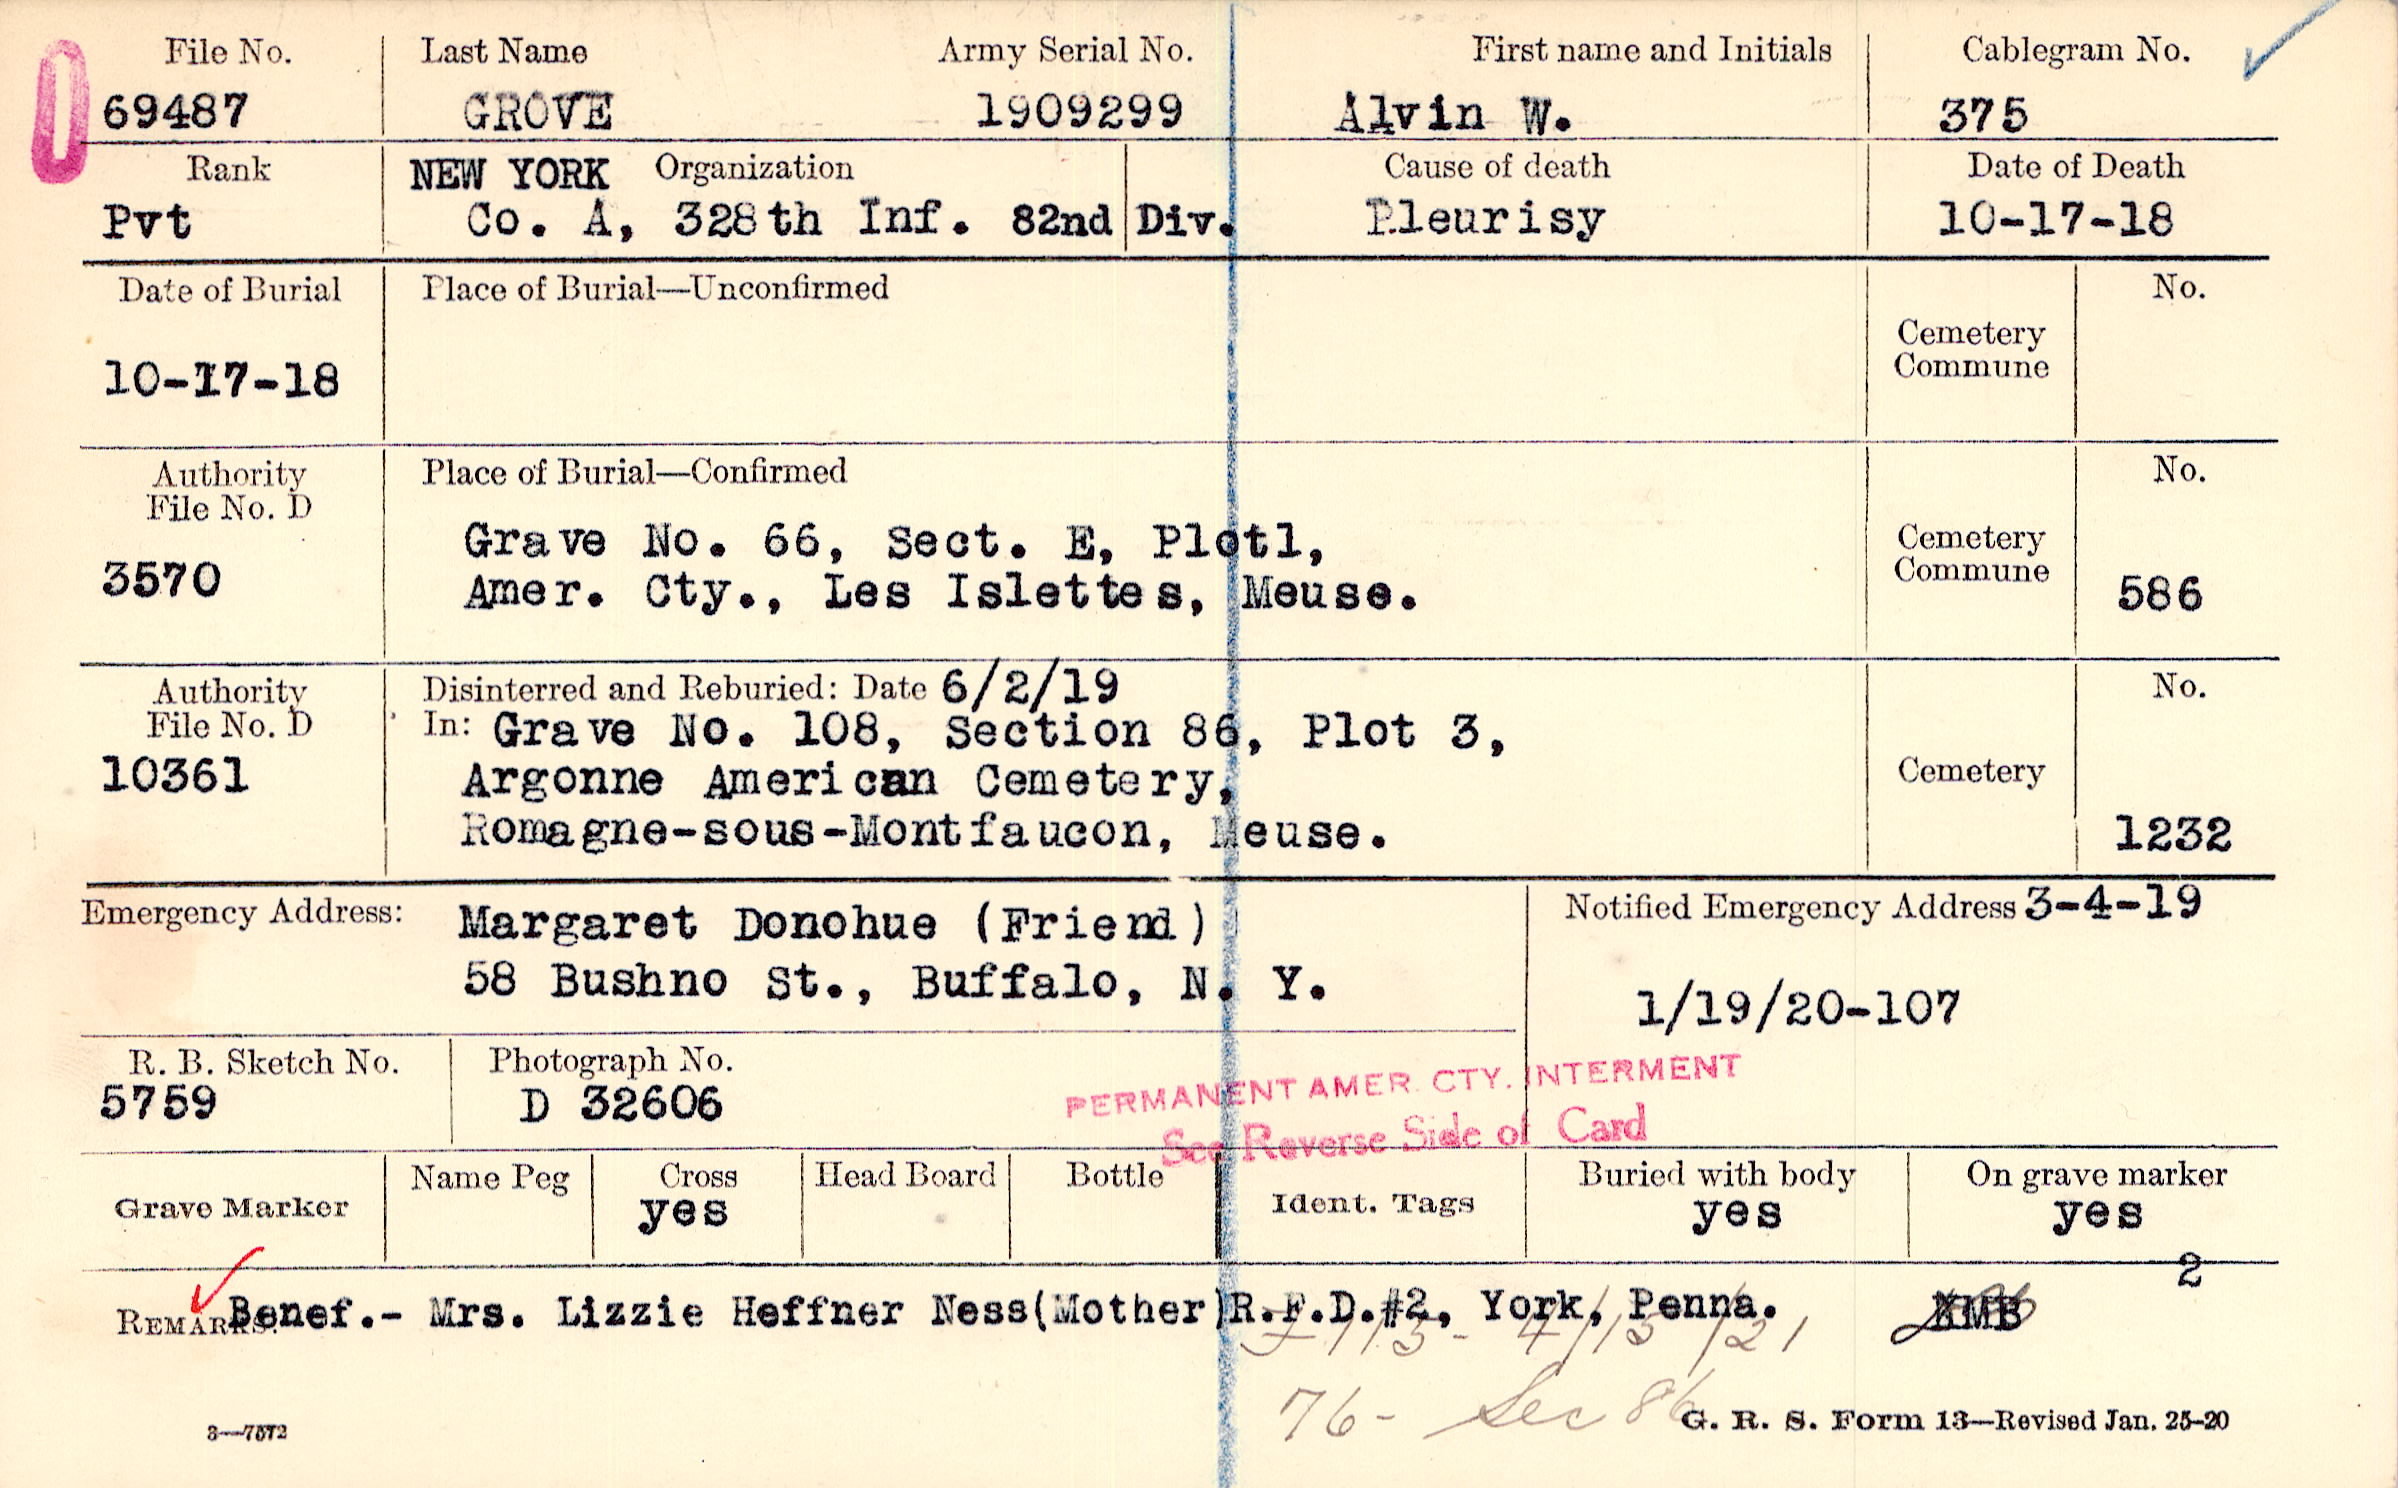 File No. Last Name Army Serial No. First name and Initials Cablegram No.
69487 GROVE 1909299 Alvin W. 375
Rank NEW YORK Organization Cause of death Date of Death
Pvt Co. A, 328th Inf. 82nd Div. Pleurisy 10-17-18
Date of Burial Place of Burial—Unconfirmed No.
Cemetery
Commune
10-17-18
Authority Place of Burial—Confirmed No.
File No. D
Grave No. 66, Sect. E, Plot1, Cemetery
3570 Amer. Cty., Les Islettes, Meuse. Commune 586
Authority Disinterred and Reburied: Date 6/2/19 No.
File No. D In: Grave No. 108, Section 86, Plot 3,
10361 Argonne American Cemetery, Cemetery
Romagne-sous-Montfaucon, Meuse. 1232
Emergency Address: Margaret Donohue (Friend) Notified Emergency Address 3-4-19
58 Bushno St., Buffalo, N. Y. 1/19/20-107
R. B. Sketch No. Photograph No.
5759 D 32606
PERMANENT AMER. CTY. INTERMENT
See Reverse Side of Card
Grave Marker Name Peg Cross Head Board Bottle Ident. Tags Buried with body On grave marker
yes yes yes
2
REMARKS: Benef.- Mrs. Lizzie Heffner Ness(Mother)R.F.D.#2, York, Penna.
113 - 4/15/21
76- Sec 86
3—7572 G. R. S. Form 13—Revised Jan. 25-20